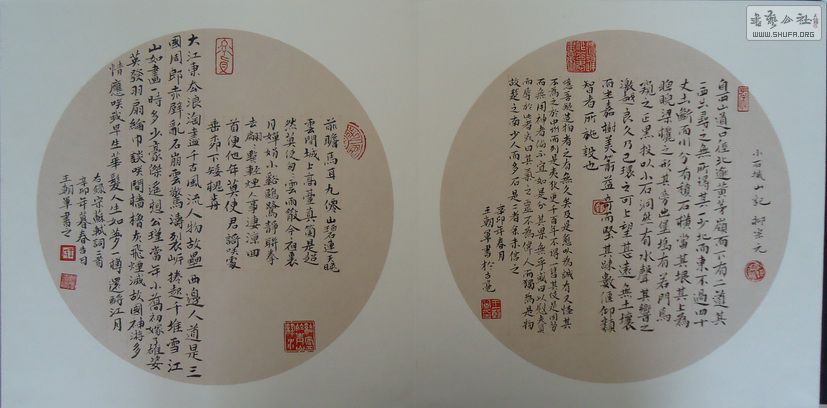 書藝公社
WWW.SHUFA.ORG
小石城山記 柳宗元
自西山道口徑北逾黄茅嶺而下有二道其
一西出尋之無所得其一少北而東不過四十
丈土斷而川分有積石横當其垠其上為
睥睨梁欐之形其旁出堡塢有若門焉
窺之正黑投以小石洞然有水聲其響之
激越良久乃已環之可上望甚遠無土壤
而生嘉樹美箭益奇而堅其疎數偃仰類
智者所施設也
噫吾疑造物者之有無久矣及是愈以為誠有又怪其
不為之於中州而列是夷狄更千百年不得一售其伎是固勞
而無用神者儻不宜如是則其果無乎或曰以慰夫賢
而辱於此者或曰其氣之靈不為偉人而獨為是物
故楚之南少人而多石是二者余未信之
辛卯年春月
王朝軍書於古亳
前瞻馬耳九僊山碧連天晚
雲閒城上高臺真箇是超
然莫使匆匆雲雨散今夜裏
月嬋娟小溪鷗鷺靜聯拳
去翩翩點輕煙人事凄涼回
首便他年莫使君謌笑處
垂柳下矮槐前
大江東去浪淘盡千古風流人物故壘西邊人道是三
國周郎赤壁亂石崩雲驚濤裂岸捲起千堆雪江
山如畫一時多少豪傑遥想公瑾當年小喬初嫁了雄姿
英發羽扇綸巾談笑間檣櫓灰飛煙滅故國神游多
情應笑我早生華髮人生如夢一樽還酹江月
右録宋蘇軾詞二首
辛卯年暮春吉日
王朝軍書之